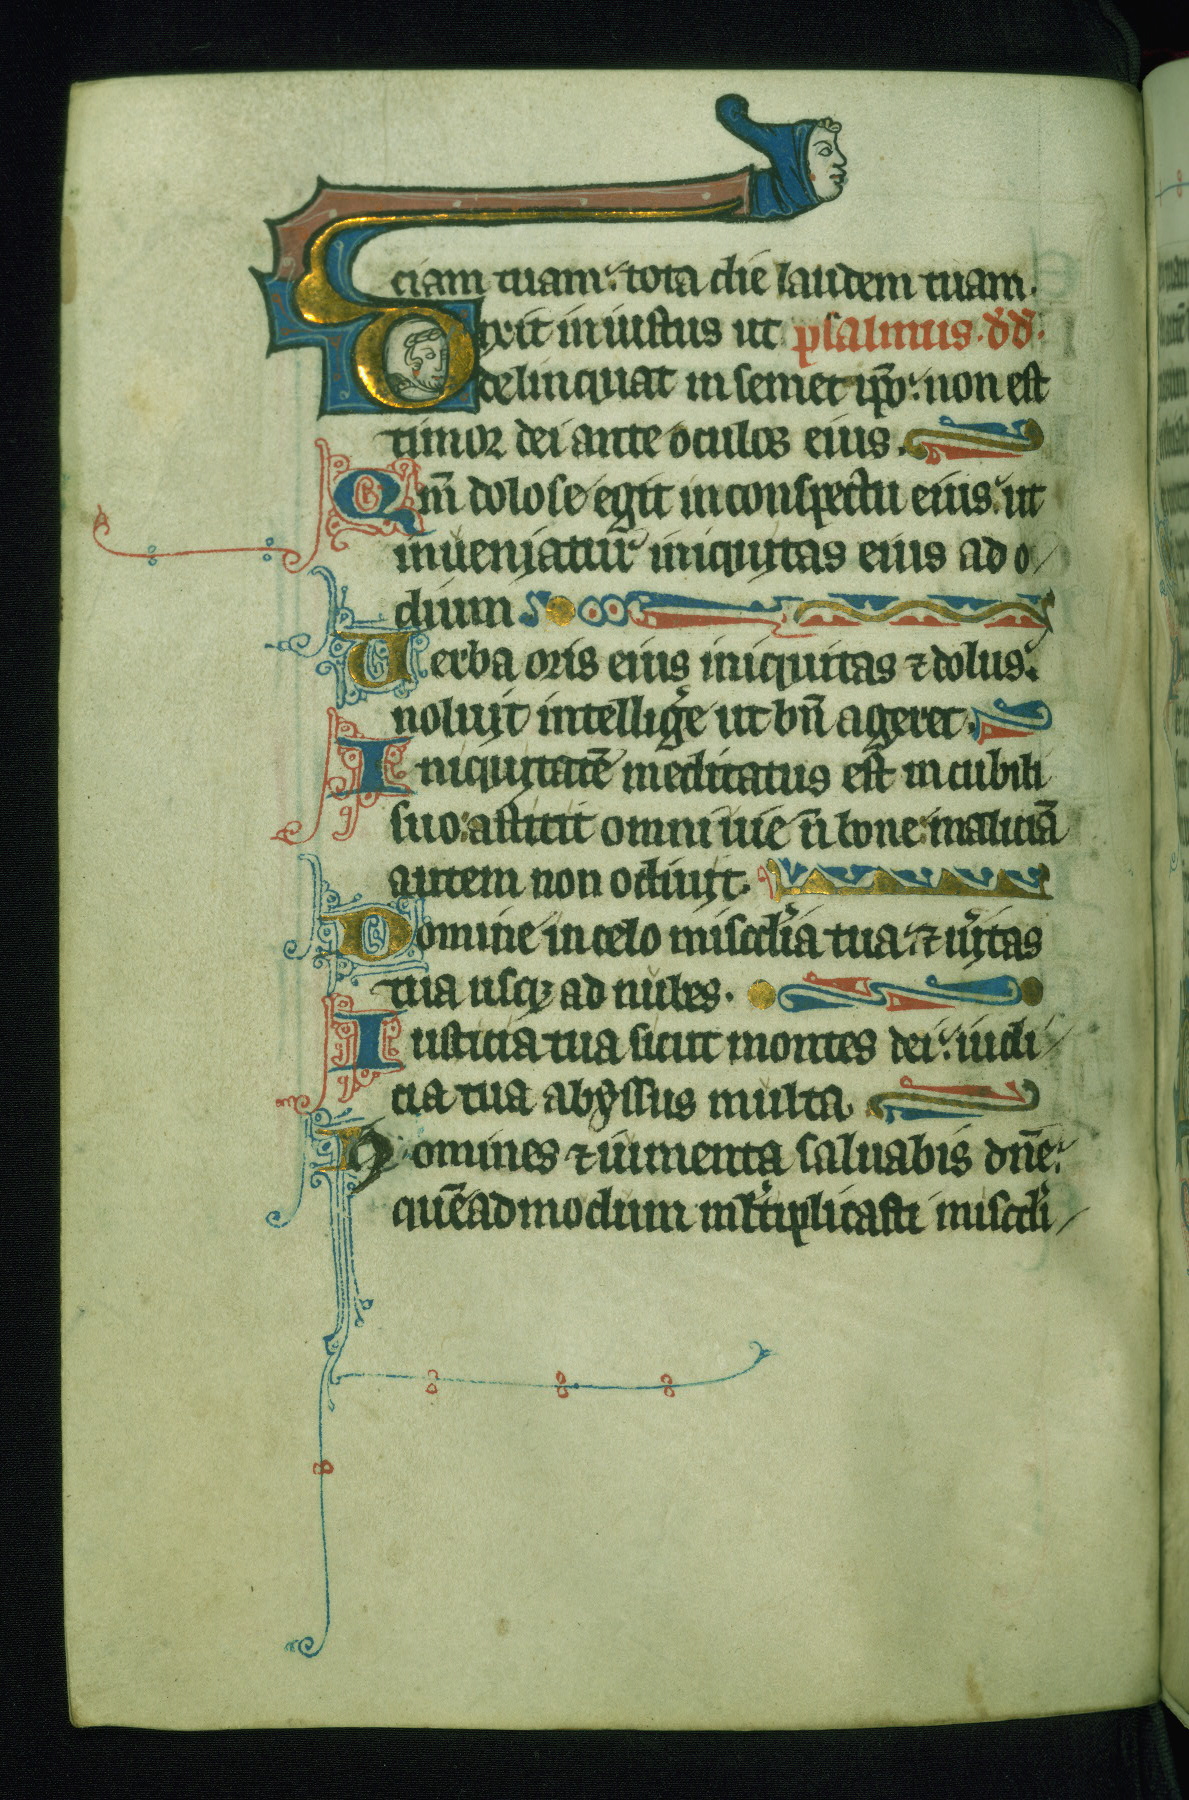 ciam tuam: tota die laudem tuam.
Dixit iniustus ut psalmus. dd.
delinquat in semet ip̄o: non est
timor dei ante oculos eius.
Qm̄ dolose egit in conspectu eius: ut
inueniatur iniquitas eius ad o/
dium
Uerba oris eius iniquitas ⁊ dolus:
noluit intellige ut bn̄ ageret.
Iniquitatē meditatus est in cubili
suo: astitit omni uie n̄ bone: maliciā
autem non odiuit.
Domine in celo misc̄dia tua: ⁊ uitas
tua usqꝫ ad nubes.
Iusticia tua sicut montes dei: iudi/
cia tua abyssus multa.
Homines ⁊ iumenta saluabis dn̄e:
quēadmodum mltiplicasti misc̄di/